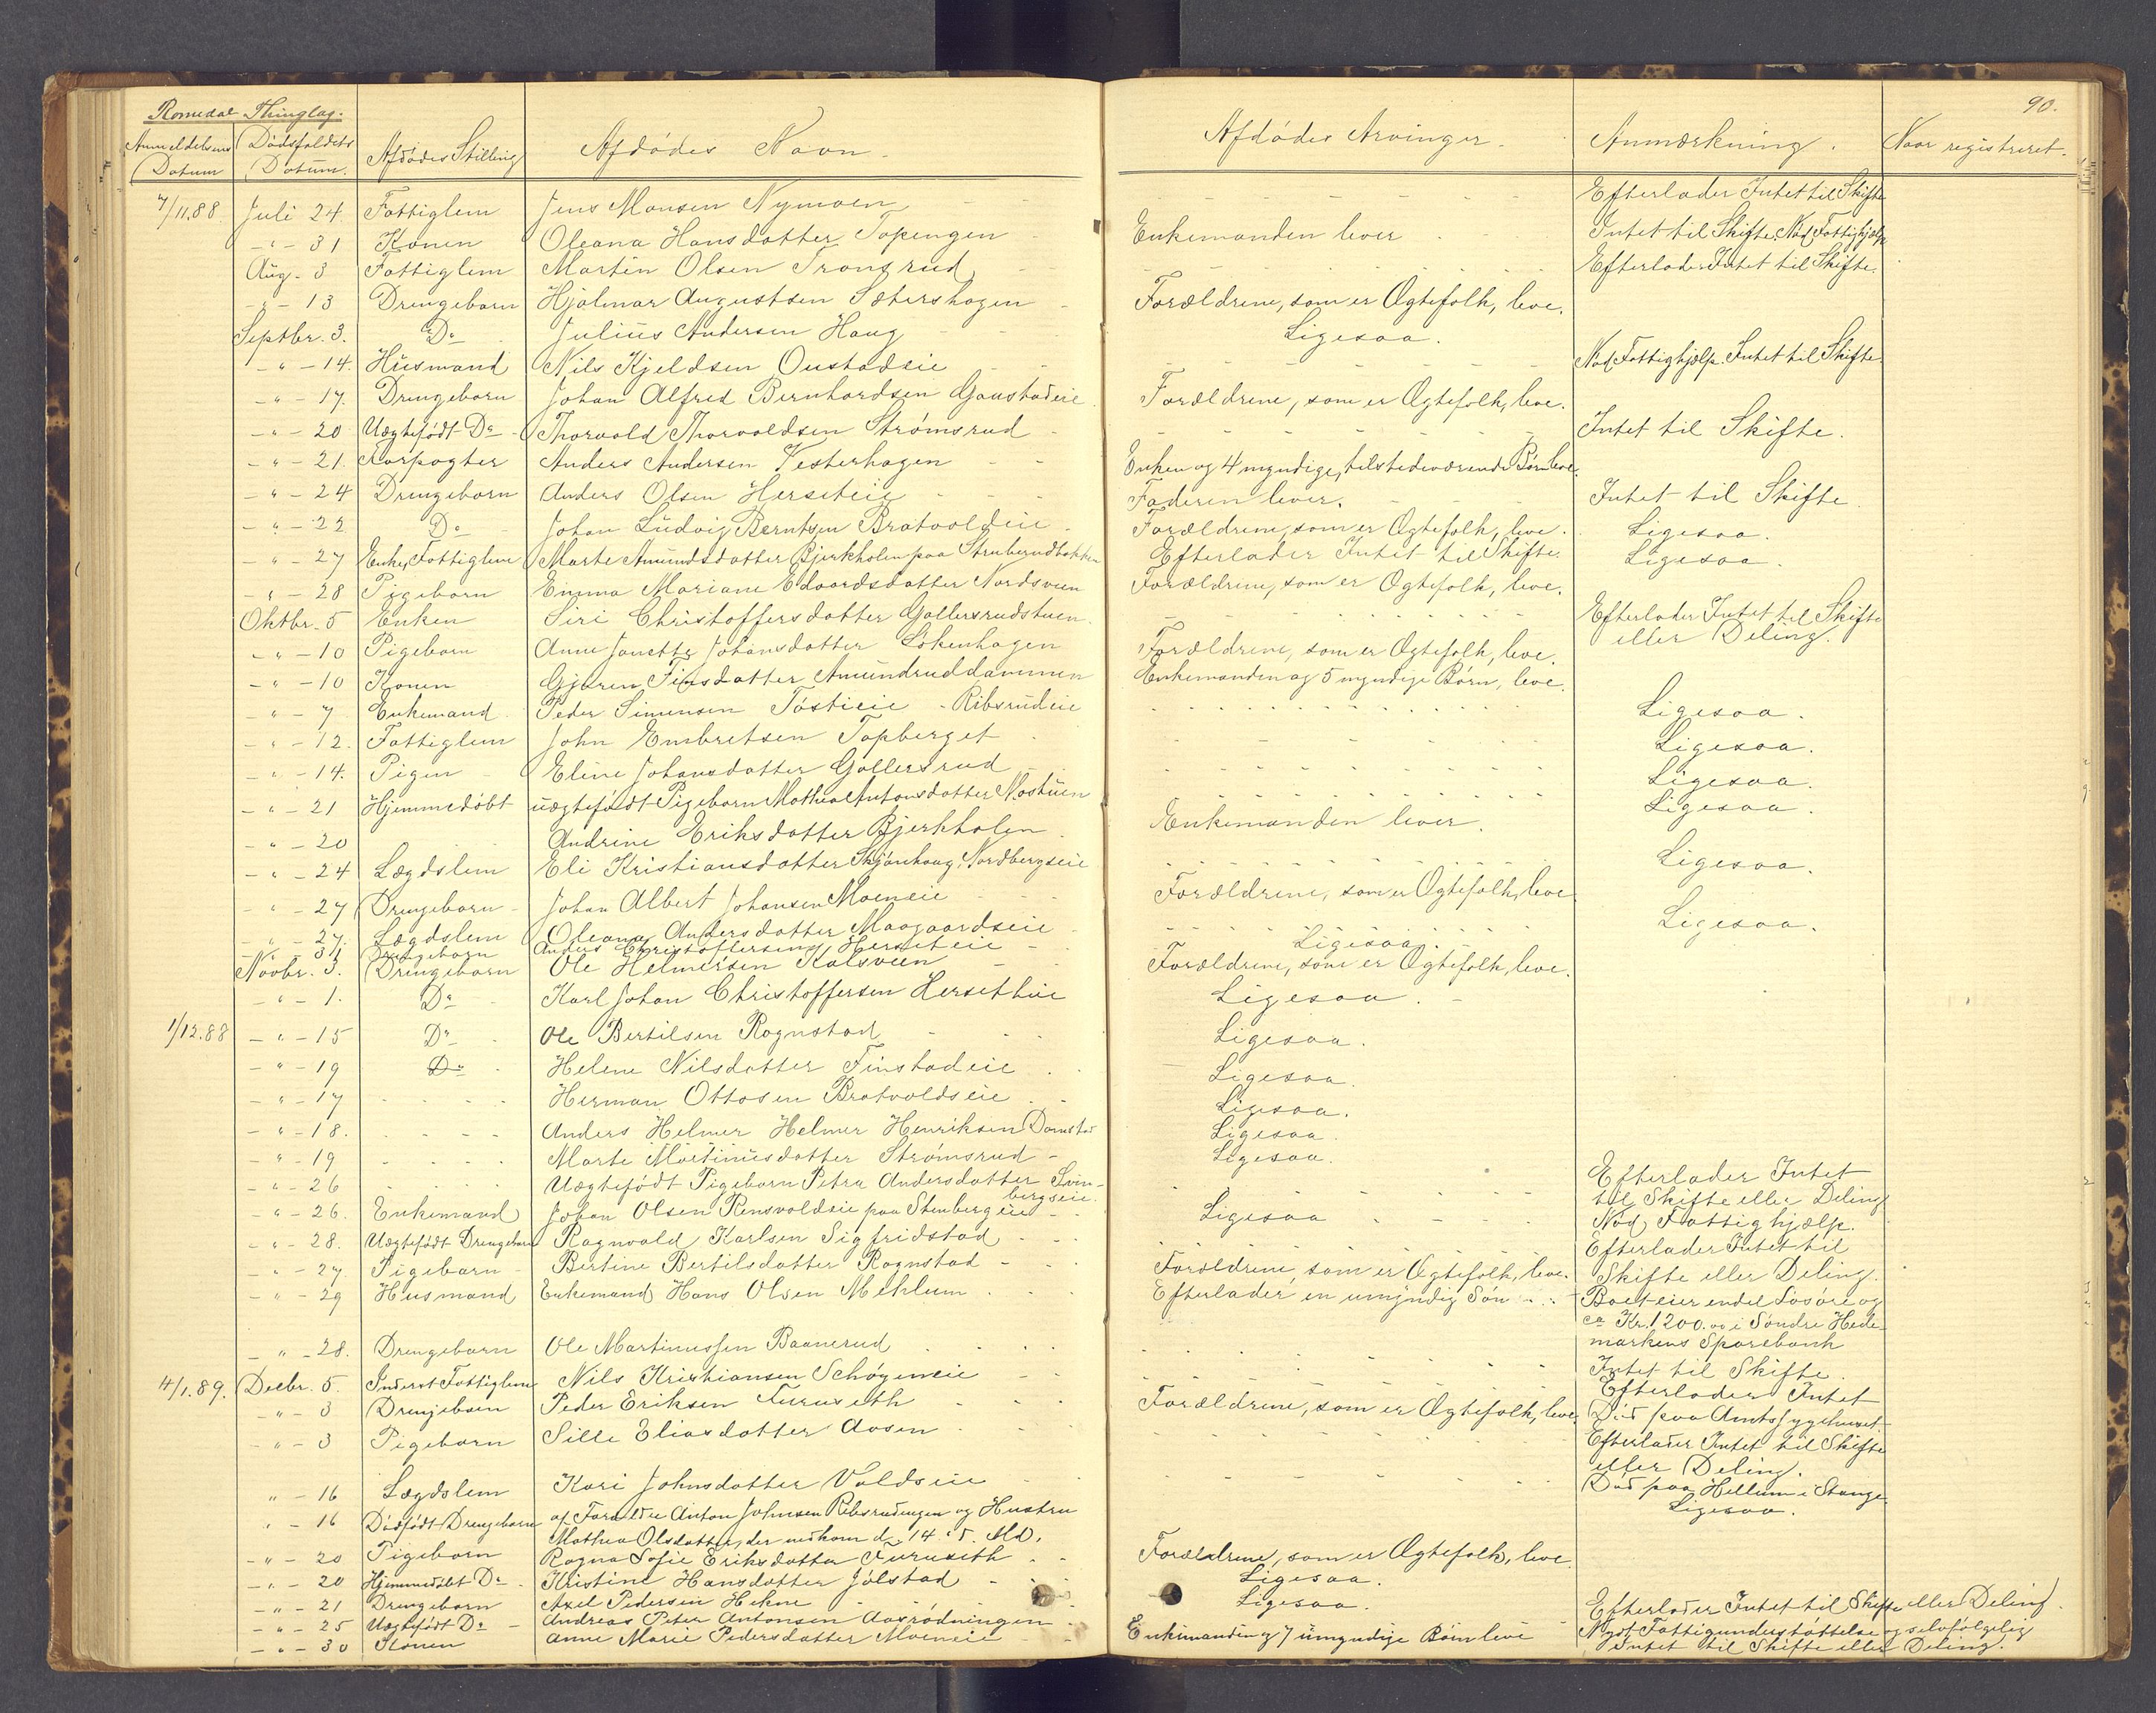 Romedal Thinglag.
90.
Anmeldelsens Datum | Dødsfaldets Datum. | Afdødes Stilling | Afdødes Navn. | Afdødes Arvinger. | Anmærkning. | Naar registreret.
7/11.88. Juli 24. Fattiglem Jens Monsen Nymoen - - Efterlader Intet til Skifte
- " - 31 Konen Oleana Hansdatter Topengen - Enkemanden lever - - Intet til Skifte. Nød Fattighjælp
Aug. 3 Fattiglem Martin Olsen Tronsrud - - Efterlader Intet til Skifte.
- " - 13 Drengebarn Hjalmar Augustsen Sætershagen - Forældrene, som er Ægtefolk, leve.
Septbr. 3. Do Julius Andersen Haug - - Ligesaa.
- " - 14. Husmand Nils Kjeldsen Oustadeie - - Nød Fattighjælp. Intet til Skifte.
- " - 17. Drengebarn Johan Alfred Bernhardsen Gaustadeie Forældrene, som er Ægtefolk, leve.
- " - 20 Uægtefødt Do - Thorvald Thorvaldsen Strømsrud - Intet til Skifte.
- " - 21. Forpagter Anders Andersen Vesterhagen - - Enken og 4 myndige, tilstedeværende Børn leve.
- " - 24 Drengebarn Anders Olsen Herseteie - - Faderen lever. - - Intet til Skifte
- " - 22 Do - Johan Ludvig Berntsen Bratvoldeie - Forældrene, som er Ægtefolk, leve. Ligesaa.
- " - 27 Enke, Fattiglem Marte Amundsdatter Bjerkholen paa Struberudbakken Efterlader Intet til Skifte. Ligesaa.
- " - 28 Pigebarn Emma Mariane Edvardsdatter Nordsveen Forældrene, som er Ægtefolk, leve.
Oktbr. 5 Enken Siri Christoffersdatter Gallersrudstuen. Efterlader Intet til Skifte
eller Deling.
- " - 10 Pigebarn Anne Janette Johansdatter Løkenhagen Forældrene, som er Ægtefolk, leve.
- " - 10 Konen Gjøren Finsdatter Amundruddammen Enkemanden og 5 myndige Børn, leve.
- " - 7 Enkemand Peder Simensen Tøstieie - Ribsrudeie Ligesaa.
- " - 12. Fattiglem John Embretsen Topberget - Ligesaa.
- " - 14. Pigen - Eline Johansdatter Gallersrud - Ligesaa.
- " - 21 Hjemmedøbt uægtefødt Pigebarn Mathea Antonsdatter Mostuen Ligesaa.
- " - 20 Andrine Eriksdatter Bjerkholen. Enkemanden lever.
- " - 24 Lægdslem Eli Kristiansdatter Skjønhaug, Nordbergseie Ligesaa.
- " - 27 Drengebarn - Johan Albert Johansen Moeneie - Forældrene, som er Ægtefolk, leve
- " - 27. Lægdslem Oleana Andersdatter Maagaardseie - Ligesaa.
- " - 31 Drengebarn Anders Christoffersen Herseteie - Ligesaa.
Novbr. 3. Drengebarn Ole Helmersen Kolsveen - Forældrene, som er Ægtefolk, leve.
- " - 1. Do - Karl Johan Christoffersen Hersetheie Ligesaa. -
1/12.88 - " - 15 Do - Ole Bertilsen Rognstad - Ligesaa.
- " - 19 Do - Helene Nilsdatter Finstadeie - Ligesaa.
- " - 17 - - - Herman Ottosen Bratvoldseie - Ligesaa.
- " - 18. - - - Anders Helmer Helmer Henriksen Damstad Ligesaa.
- " - 19 - - - Marte Martinusdatter Strømsrud - Ligesaa.
- " - 26 - - - Uægtefødt Pigebarn Petra Andersdatter Svin-
bergseie. Efterlader Intet
til Skifte eller Deling
- " - 26. Enkemand Johan Olsen Rensvoldeie paa Stenbergeie - - Ligesaa - - Nød Fattighjælp.
- " - 28. Uægtefødt Drengebarn Ragnvald Karlsen Sigfridstad - - Efterlader Intet til
Skifte eller Deling.
- " - 27. Pigebarn - Bertine Bertilsdatter Rognstad - - Forældrene, som er Ægtefolk, leve.
- " - 29 Husmand Enkemand Hans Olsen Mehlum - - Efterlader en umyndig Søn - - Boet eier endel Løsøre og
ca Kr. 1200.00 i Søndre Hede-
markens Sparebank
- " - 28. Drengebarn Ole Martinussen Baanerud - - Intet til Skifte.
4/1.89. Decbr. 5. Inderst Fattiglem Nils Kristiansen Schøyeneie - - Efterlader Intet
- " - 3 Drengebarn Peder Eriksen Furuseth - - Forældrene, som er Ægtefolk, leve. Død paa Amtssygehuset
- " - 3 Pigebarn Sille Eliasdatter Aasen - - Efterlader Intet til Skifte
eller Deling.
" - 16 Lægdslem Kari Johnsdatter Voldseie - - Død paa Hellum i Stange
" - 16 Dødfødt Drengebarn af Forældre Anton Johnsen Ribsrudengen og Hustru
Mathea Olsdatter, der nedkom d. 14. d. Md. Ligesaa.
- " - 20 Pigebarn Ragna Sofie Eriksdatter Furuseth - - Forældrene, som er Ægtefolk, leve.
- " - 20 Hjemmedøbt Do - Kristine Hansdatter Jølstad - - Ligesaa.
- " - 21 Drengebarn Axel Pedersen Hekne - - Ligesaa.
- " - 25 Uægtefødt Do - Andreas Peter Antonsen Aasrødningen - Efterlader Intet til Skifte eller Deling.
- " - 30 Konen Anne Marie Pedersdatter Moeneie - Enkemanden og 7 umyndige Børn leve - Nydt Fattigunderstøttelse og selvfølgelig
Intet til Skifte eller Deling.